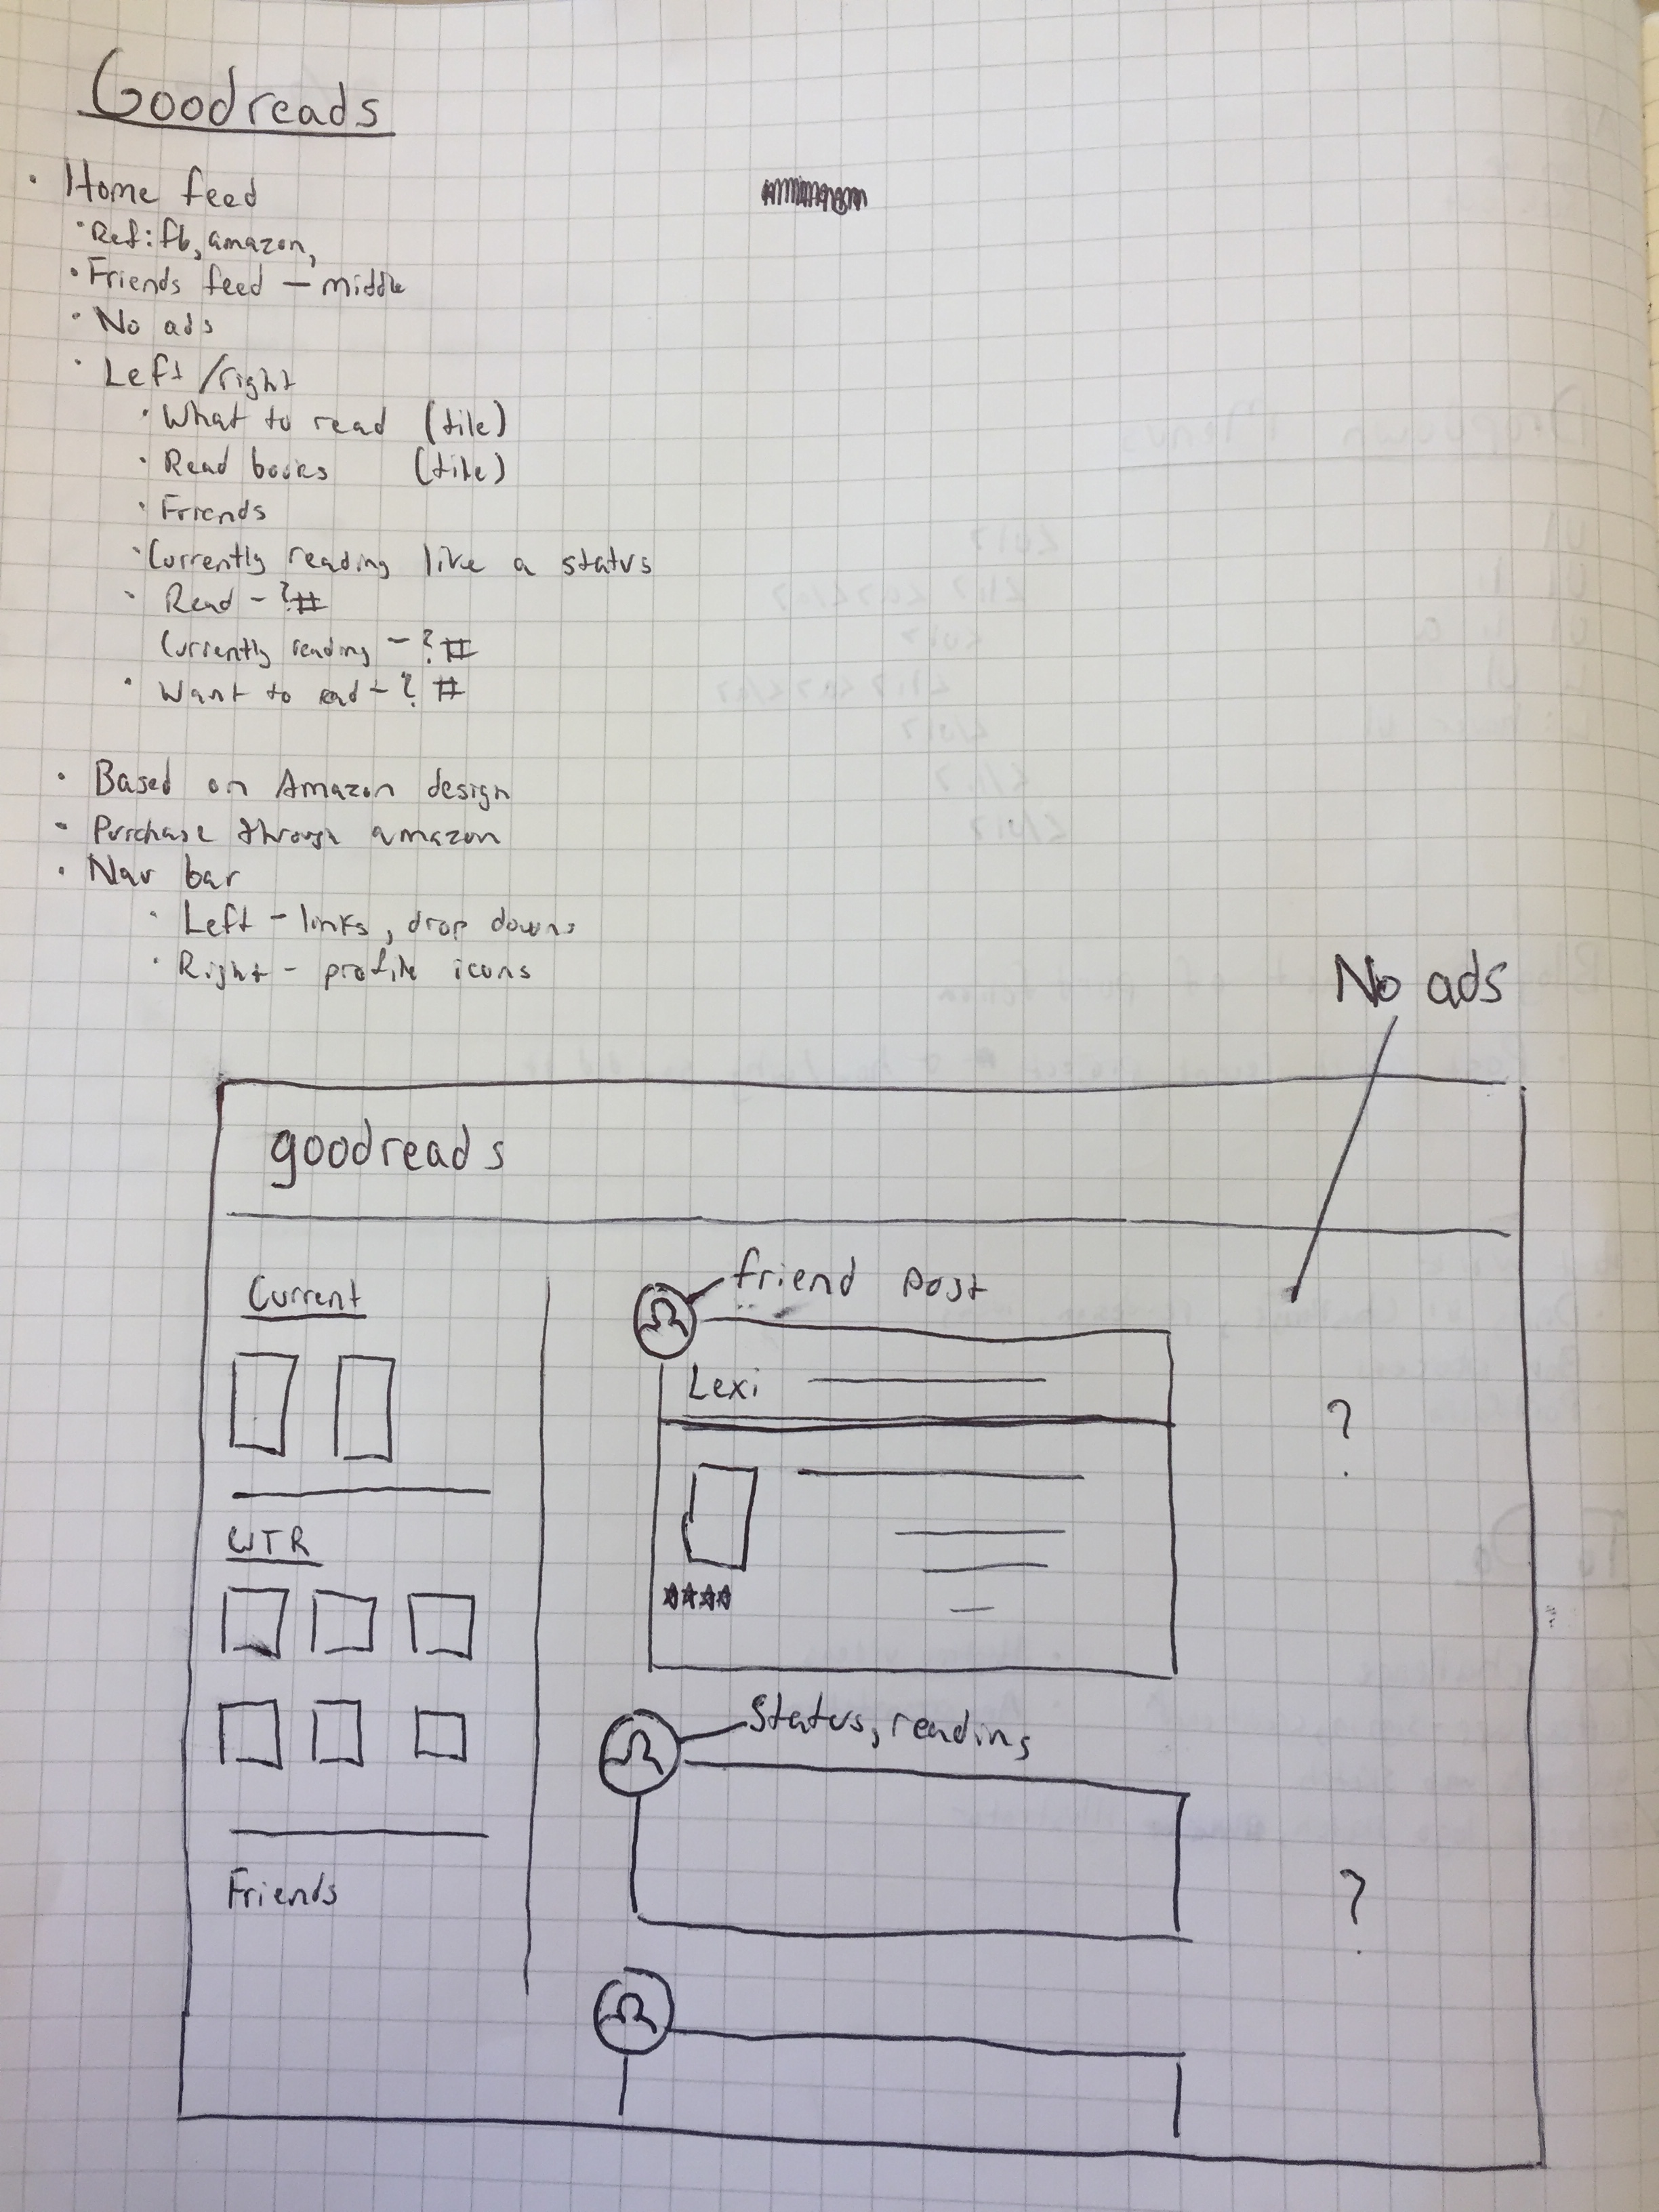 Goodreads
· Home feed
· Ref: fb, amazon,
· Friends feed – middle
· No ads
· Left /right
· What to read (tile)
· Read books (tile)
· Friends
· Currently reading like a status
· Read - ?#
Currently reading - ?#
· Want to read - ? #
· Based on Amazon design
· Purchase through amazon
· Nav bar
· Left - links, drop downs
· Right - profile icons
No ads
goodreads
Current
friend post
Lexi
?
WTR
Status, reading
Friends
?